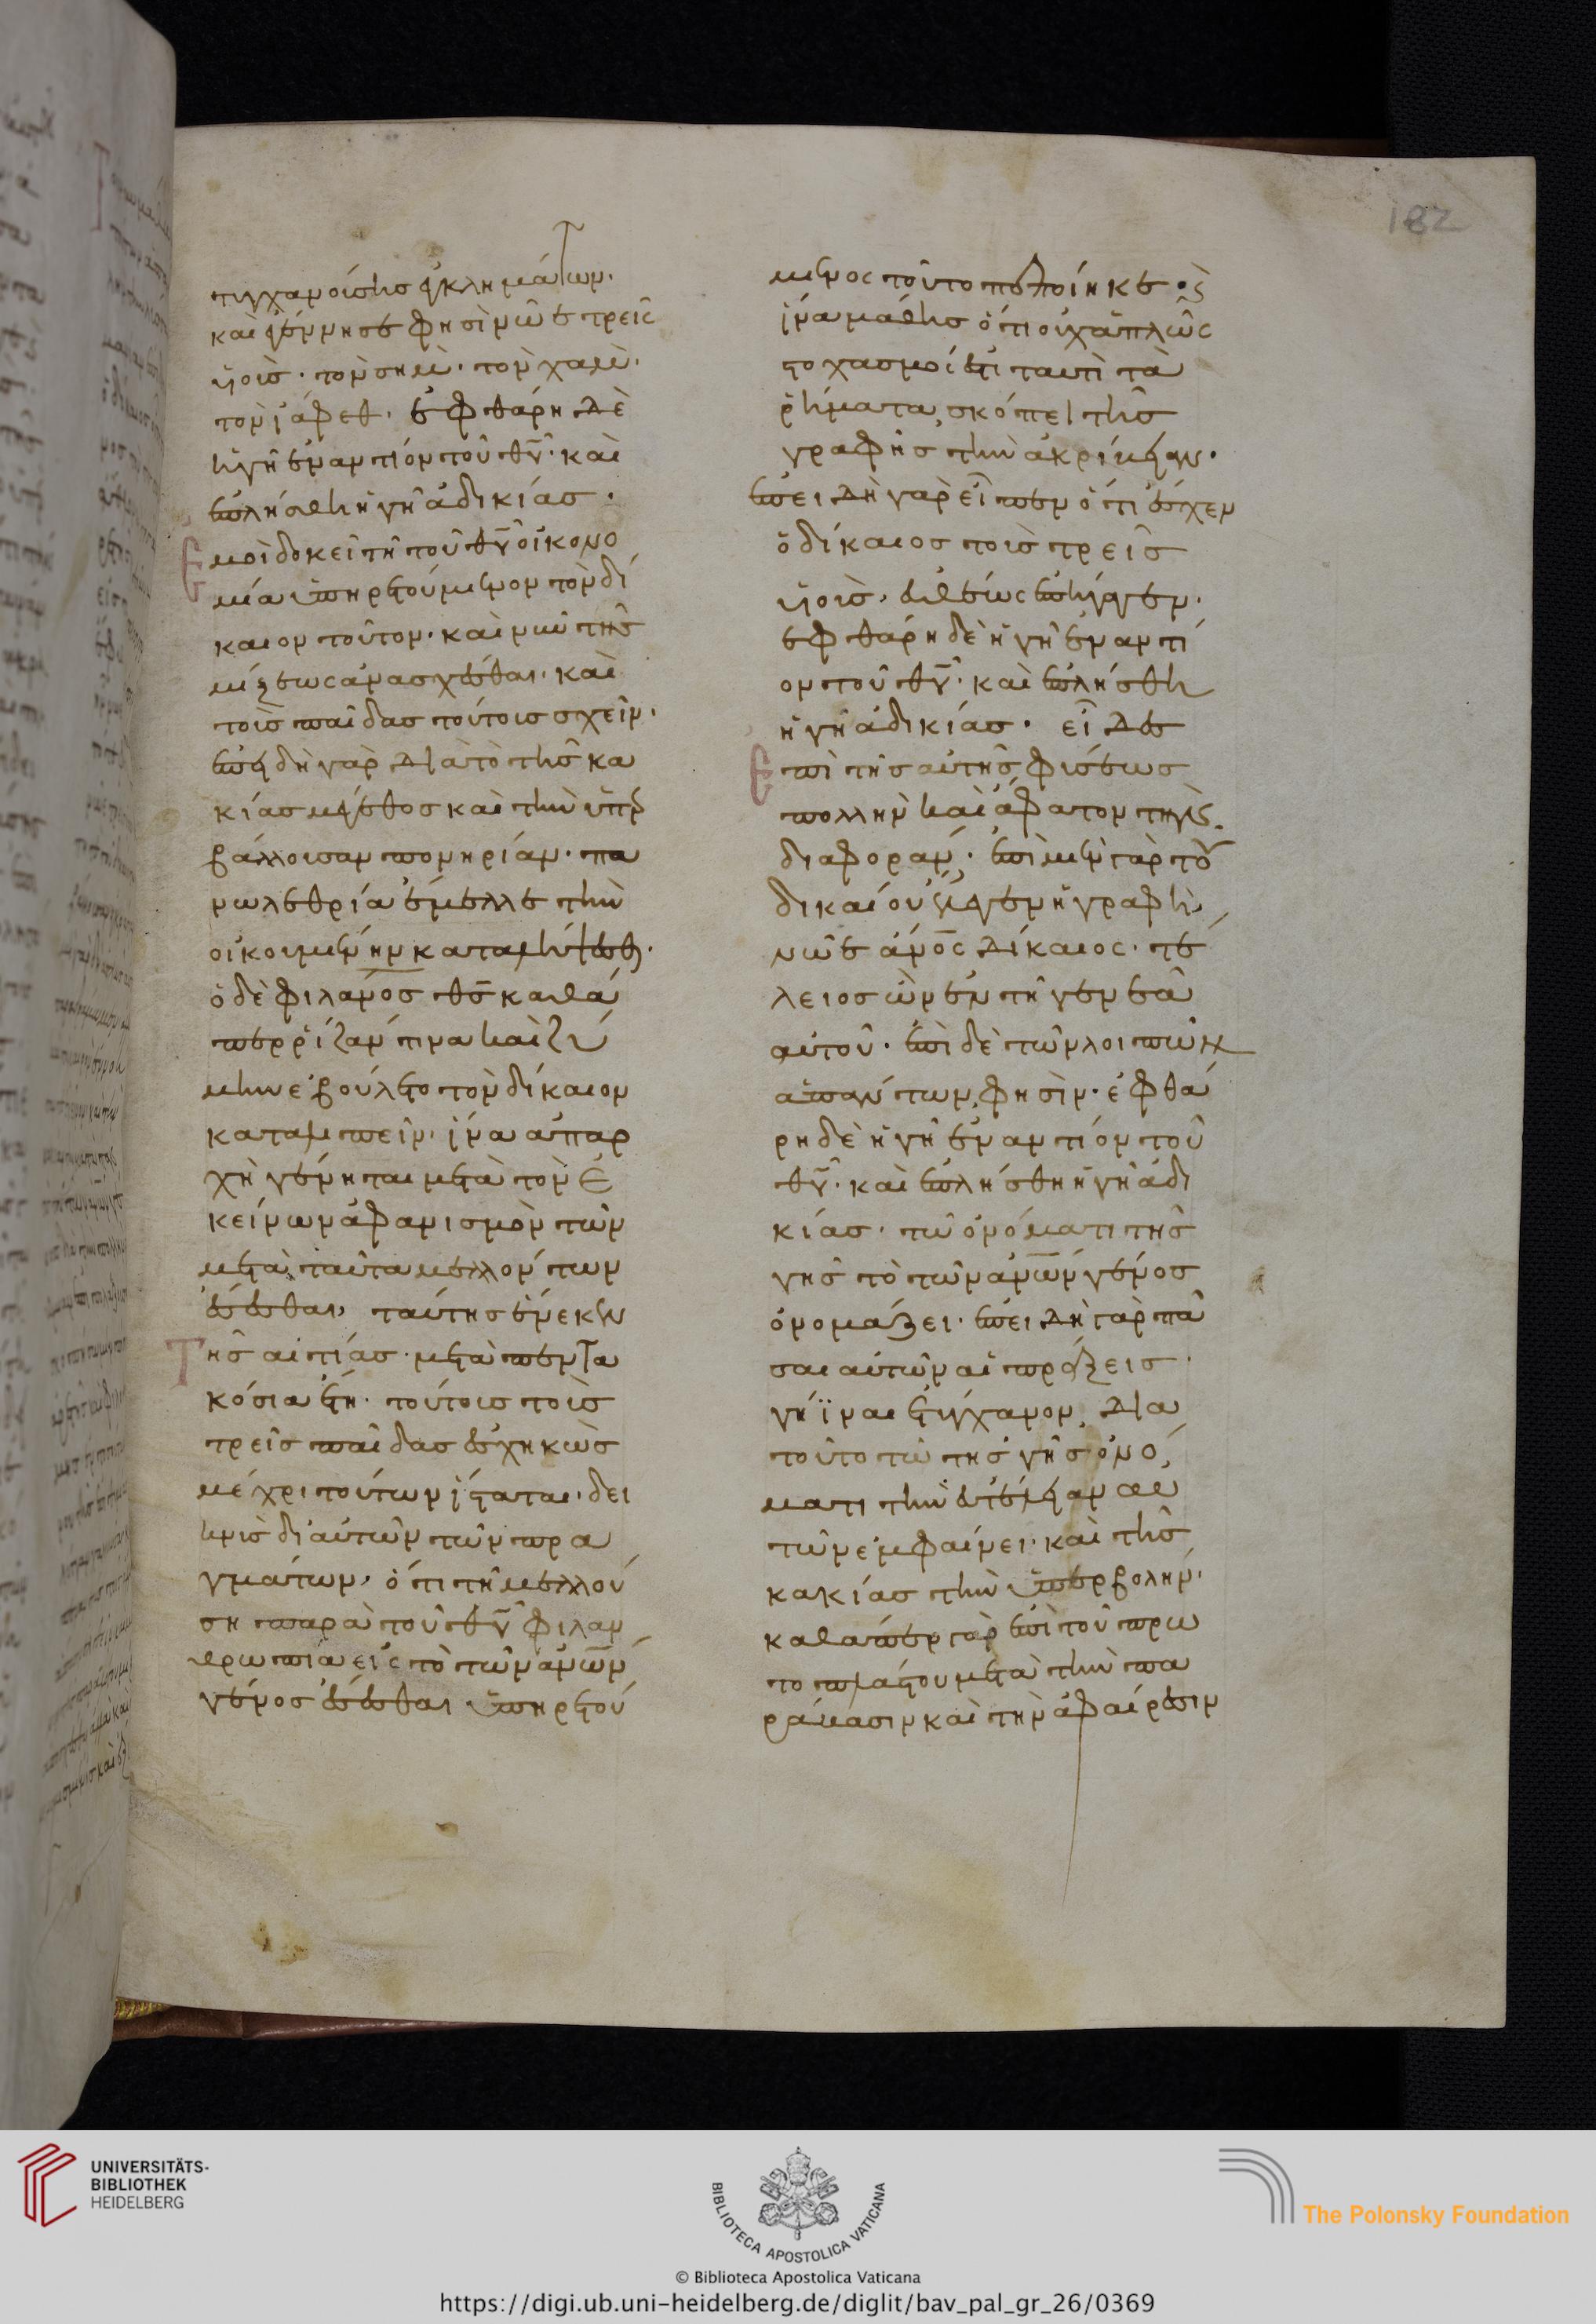 182
τυγχανούσης ἐγκλημάτων.
καὶ ἐγέννησε φησὶ νῶε τρεῖς
υἱούς. τὸν σὴμ. τὸν χάμ.
τὸν ἰάφεθ. ἐφθάρη δὲ
ἡ γῆ ἐναντίον τοῦ θυ̅. καὶ
ἐπλήσθη ἡ γῆ ἀδικίας.
Ἐμοὶ δοκεῖ τῇ τοῦ θυ̅ οἰκονο
μία ὑπηρετούμενον τὸν δί
καιον τοῦτον. καὶ νῦν τῆς
μίξεως ἀνασχέσθαι. καὶ
τοὺς παῖδας τούτους σχεῖν.
ἐπειδὴ γὰρ διὰ τὸ τῆς κα
κίας μέγεθος καὶ τὴν ὑπερ
βάλλουσαν πονηρίαν. πα
νωλεθρία ἔμελλε τὴν
οἰκουμένην καταλήψεσθαι.
ὁ δὲ φιλανος θς̅ καθά
περ ῥίζαν τινα καὶ ζύ
μην ἐβούλετο τὸν δίκαιον
καταλιπεῖν. ἵνα ἀπαρ
χὴ γένηται μετὰ τὸν ἐ
κείνων ἀφανισμὸν τῶν
μετὰ ταῦτα μελλόντων
ἔσεσθαι, ταύτης ἕνεκεν
Τῆς αἰτίας. μετὰ πεντα
κόσια ἔτη. τούτους τοὺς
τρεῖς παῖδας ἐσχηκὼς
μέχρι τούτων ἵσταται. δει
κνὺς δι' αὐτῶν τῶν πρα
γμάτων, ὅτι τῆ μελλού
ση παρὰ τοῦ θυ̅ φιλαν
θρωπία εἰς τὸ τῶν ἀνω̅ν
γένος ἔσεσθαι ὑπηρετού
μενος τοῦτο πεποίηκε. καὶ
ἵνα μάθης ὅτι οὐχ ἁπλῶς
στοχασμοί ἐστι ταυτὶ τὰ
ῥήματα, σκόπει τῆς
γραφῆς τὴν ἀκρίβειαν.
ἐπειδὴ γὰρ εἶπεν ὅτι ἔσχεν
ὁ δίκαιος τοὺς τρεῖς
υἱούς. εὐθέως ἐπήγαγεν.
ἐφθάρη δὲ ἡ γῆ ἐναντί
ον τοῦ θυ̅. καὶ ἐπλήσθη
ἡ γῆ ἀδικίας. εἶδες
Ἐπὶ τῆς αὐτῆς φύσεως
πολλὴν καὶ ἄφατον τὴν
διαφοράν. ἐπὶ μὲν γὰρ τοῦ
δικαίου ἔλεγεν ἡ γραφή,
νῶε ἀνο̅ς δίκαιος. τέ
λειος ὢν ἐν τῇ γενεᾶ
αὐτοῦ. ἐπὶ δὲ τῶν λοιπῶν
ἁπάντων, φησὶν. ἐφθά
ρη δὲ ἡ γῆ ἐναντίον τοῦ
θυ̅. καὶ ἐπλήσθη ἡ γῆ ἀδι
κίας. τῶ ὀνόματι τῆς
γῆς τὸ τῶν ἀνω̅ν γένος
ὀνομάζει. ἐπειδὴ γὰρ πᾶ
σαι αὐτῶν αἱ πράξεις
γήϊναι ἐτύγχανον, διὰ
τοῦτο τῶ τῆς γῆς ὀνό
ματι τὴν εὐτέλειαν αὐ
τῶν ἐμφαίνει. καὶ τῆς
κακίας τὴν ὑπερβολήν.
καθάπερ γὰρ ἐπὶ τοῦ πρω
τοπλάστου μετὰ τὴν πα
ράβασιν καὶ τὴν ἀφαίρεσιν
UNIVERSITÄTS-
BIBLIOTHEK
HEIDELBERG
BIBLIOTECA APOSTOLICA VATICANA
The Polonsky Foundation
© Biblioteca Apostolica Vaticana
https://digi.ub.uni-heidelberg.de/diglit/bav_pal_gr_26/0369